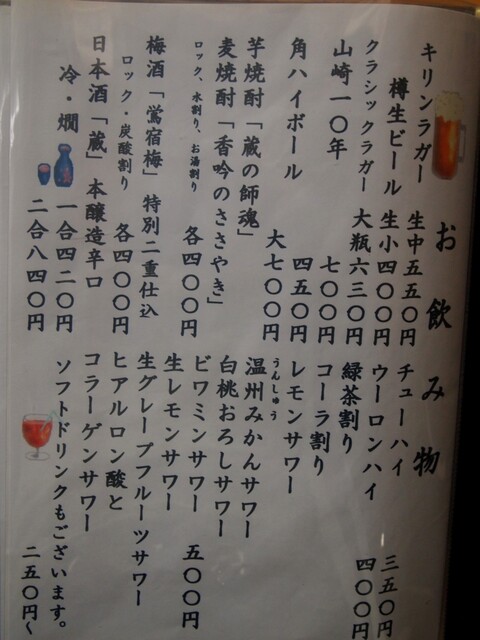 お飲み物
キリンラガー 生中五五〇円
樽生ビール 生小四〇〇円
クラシックラガー 大瓶六三〇円
山崎一〇年 七〇〇円
角ハイボール 四五〇円
大七〇〇円
芋焼酎「蔵の師魂」
麦焼酎「香吟のささやき」
ロック、水割り、お湯割り 各四〇〇円
梅酒「鶯宿梅」特別二重仕込
ロック・炭酸割り 各四〇〇円
日本酒「蔵」本醸造辛口
冷・燗 一合四二〇円
二合八四〇円
チューハイ 三五〇円
ウーロンハイ
緑茶割り 四〇〇円
コーラ割り
レモンサワー
うんしゅう
温州みかんサワー
白桃おろしサワー
ビワミンサワー 五〇〇円
生レモンサワー
生グレープフルーツサワー
ヒアルロン酸と
コラーゲンサワー
ソフトドリンクもございます。
二五〇円～